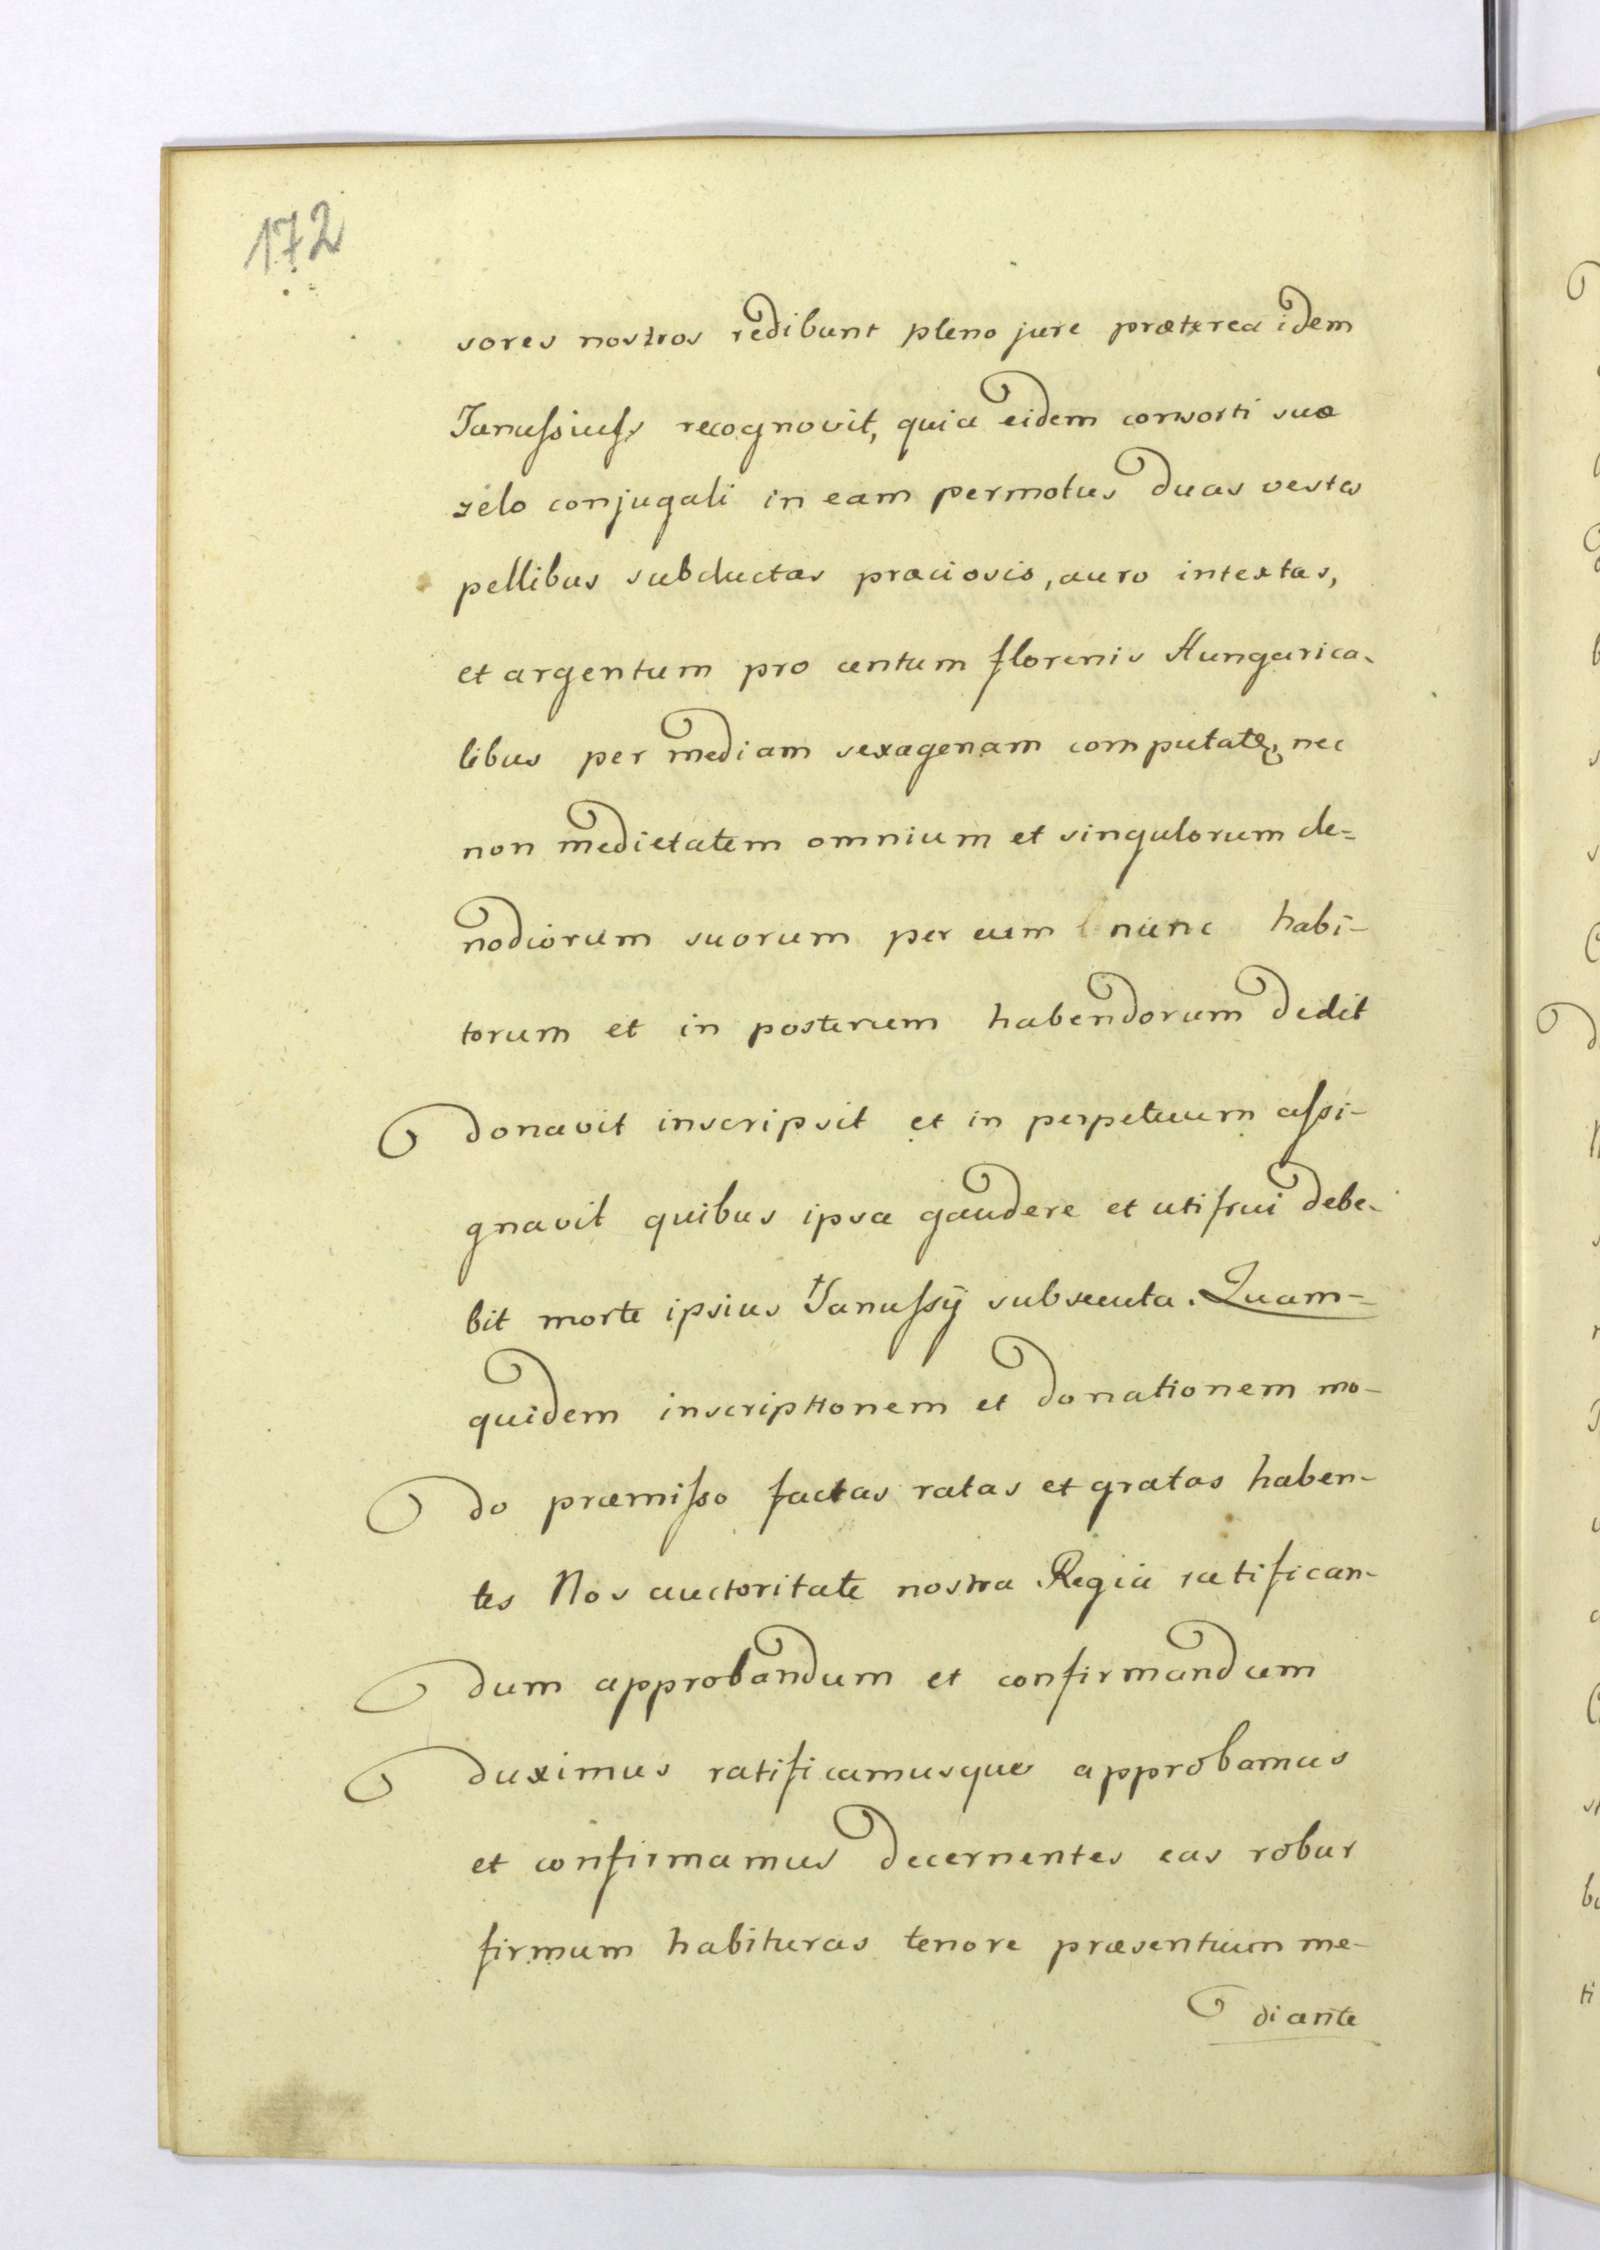 172
sores nostros redibunt pleno jure præterea idem
Janussius recognovit, quia eidem consorti suæ
zelo conjugali in eam permotus duas vestes
pellibus subductas præciosis, auro intextas,
et argentum pro centum florenis Hungarica-
libus per mediam sexagenam computatę, nec
non medietatem omnium et singulorum cle-
nodiorum suorum per eum nunc habi-
torum et in posterum habendorum dedit
donavit inscripsit et in perpetuum assi-
gnavit quibus ipsa gaudere et uti frui debe-
bit morte ipsius Janussÿ subsecuta. Quam-
quidem inscriptionem et donationem mo-
do præmisso factas ratas et gratas haben-
tes Nos auctoritate nostra Regia ratifican-
dum approbandum et confirmandum
duximus ratificamusque approbamus
et confirmamus decernentes eas robur
firmum habituras tenore præsentium me-
diante